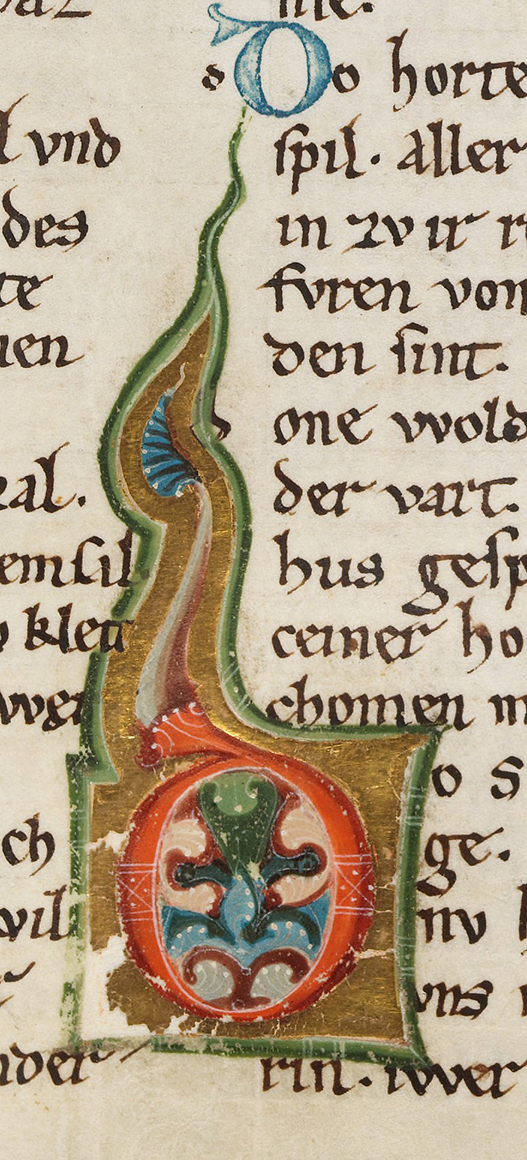 l vnd
des
te
al.
emsil
klett
ch
wil
nder
Do horte
spil. aller
in zwir
fvren von
den sint.
one wold
der vart.
hus gesp
ceiner ho
chomen m
Do s
ge.
nv
vns
rin. ivver